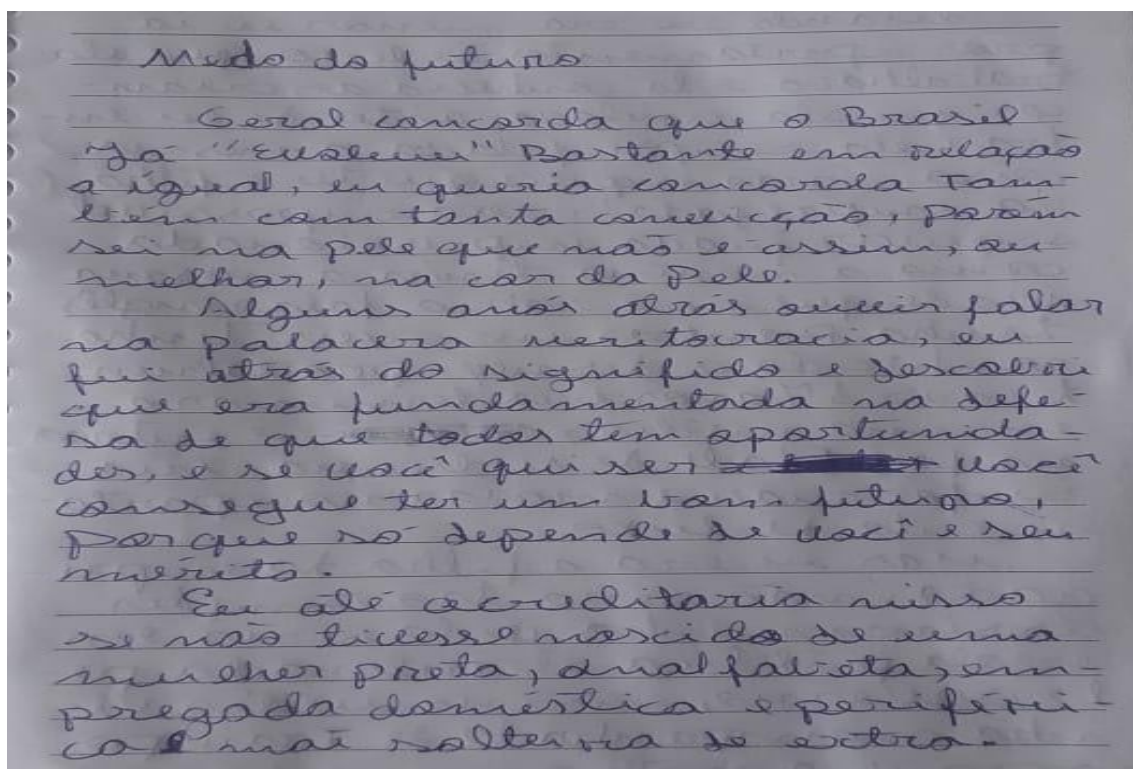 Medo do futuro
Geral concorda que o Brasil
Ja "evoluiu" Bastante em relação
a igual, eu queria concorda Tam-
bém com tanta convicção, porém
sei na pele que não é assim, ou
melhor, na cor da Pele.
Alguns anos atrás ouvir falar
na palavra meritocracia, eu
fui atrás do significado e descobri
que era fundamentada na defe-
sa de que todos tem oportunida-
des, e se você quiser você
consegue ter um bom futuro,
porque só depende de você e seu
mérito.
Eu até acreditaria nisso
se não tivesse nascido de uma
mulher preta, analfabeta, em-
pregada doméstica e periféri-
ca e mãe solteira de extra.